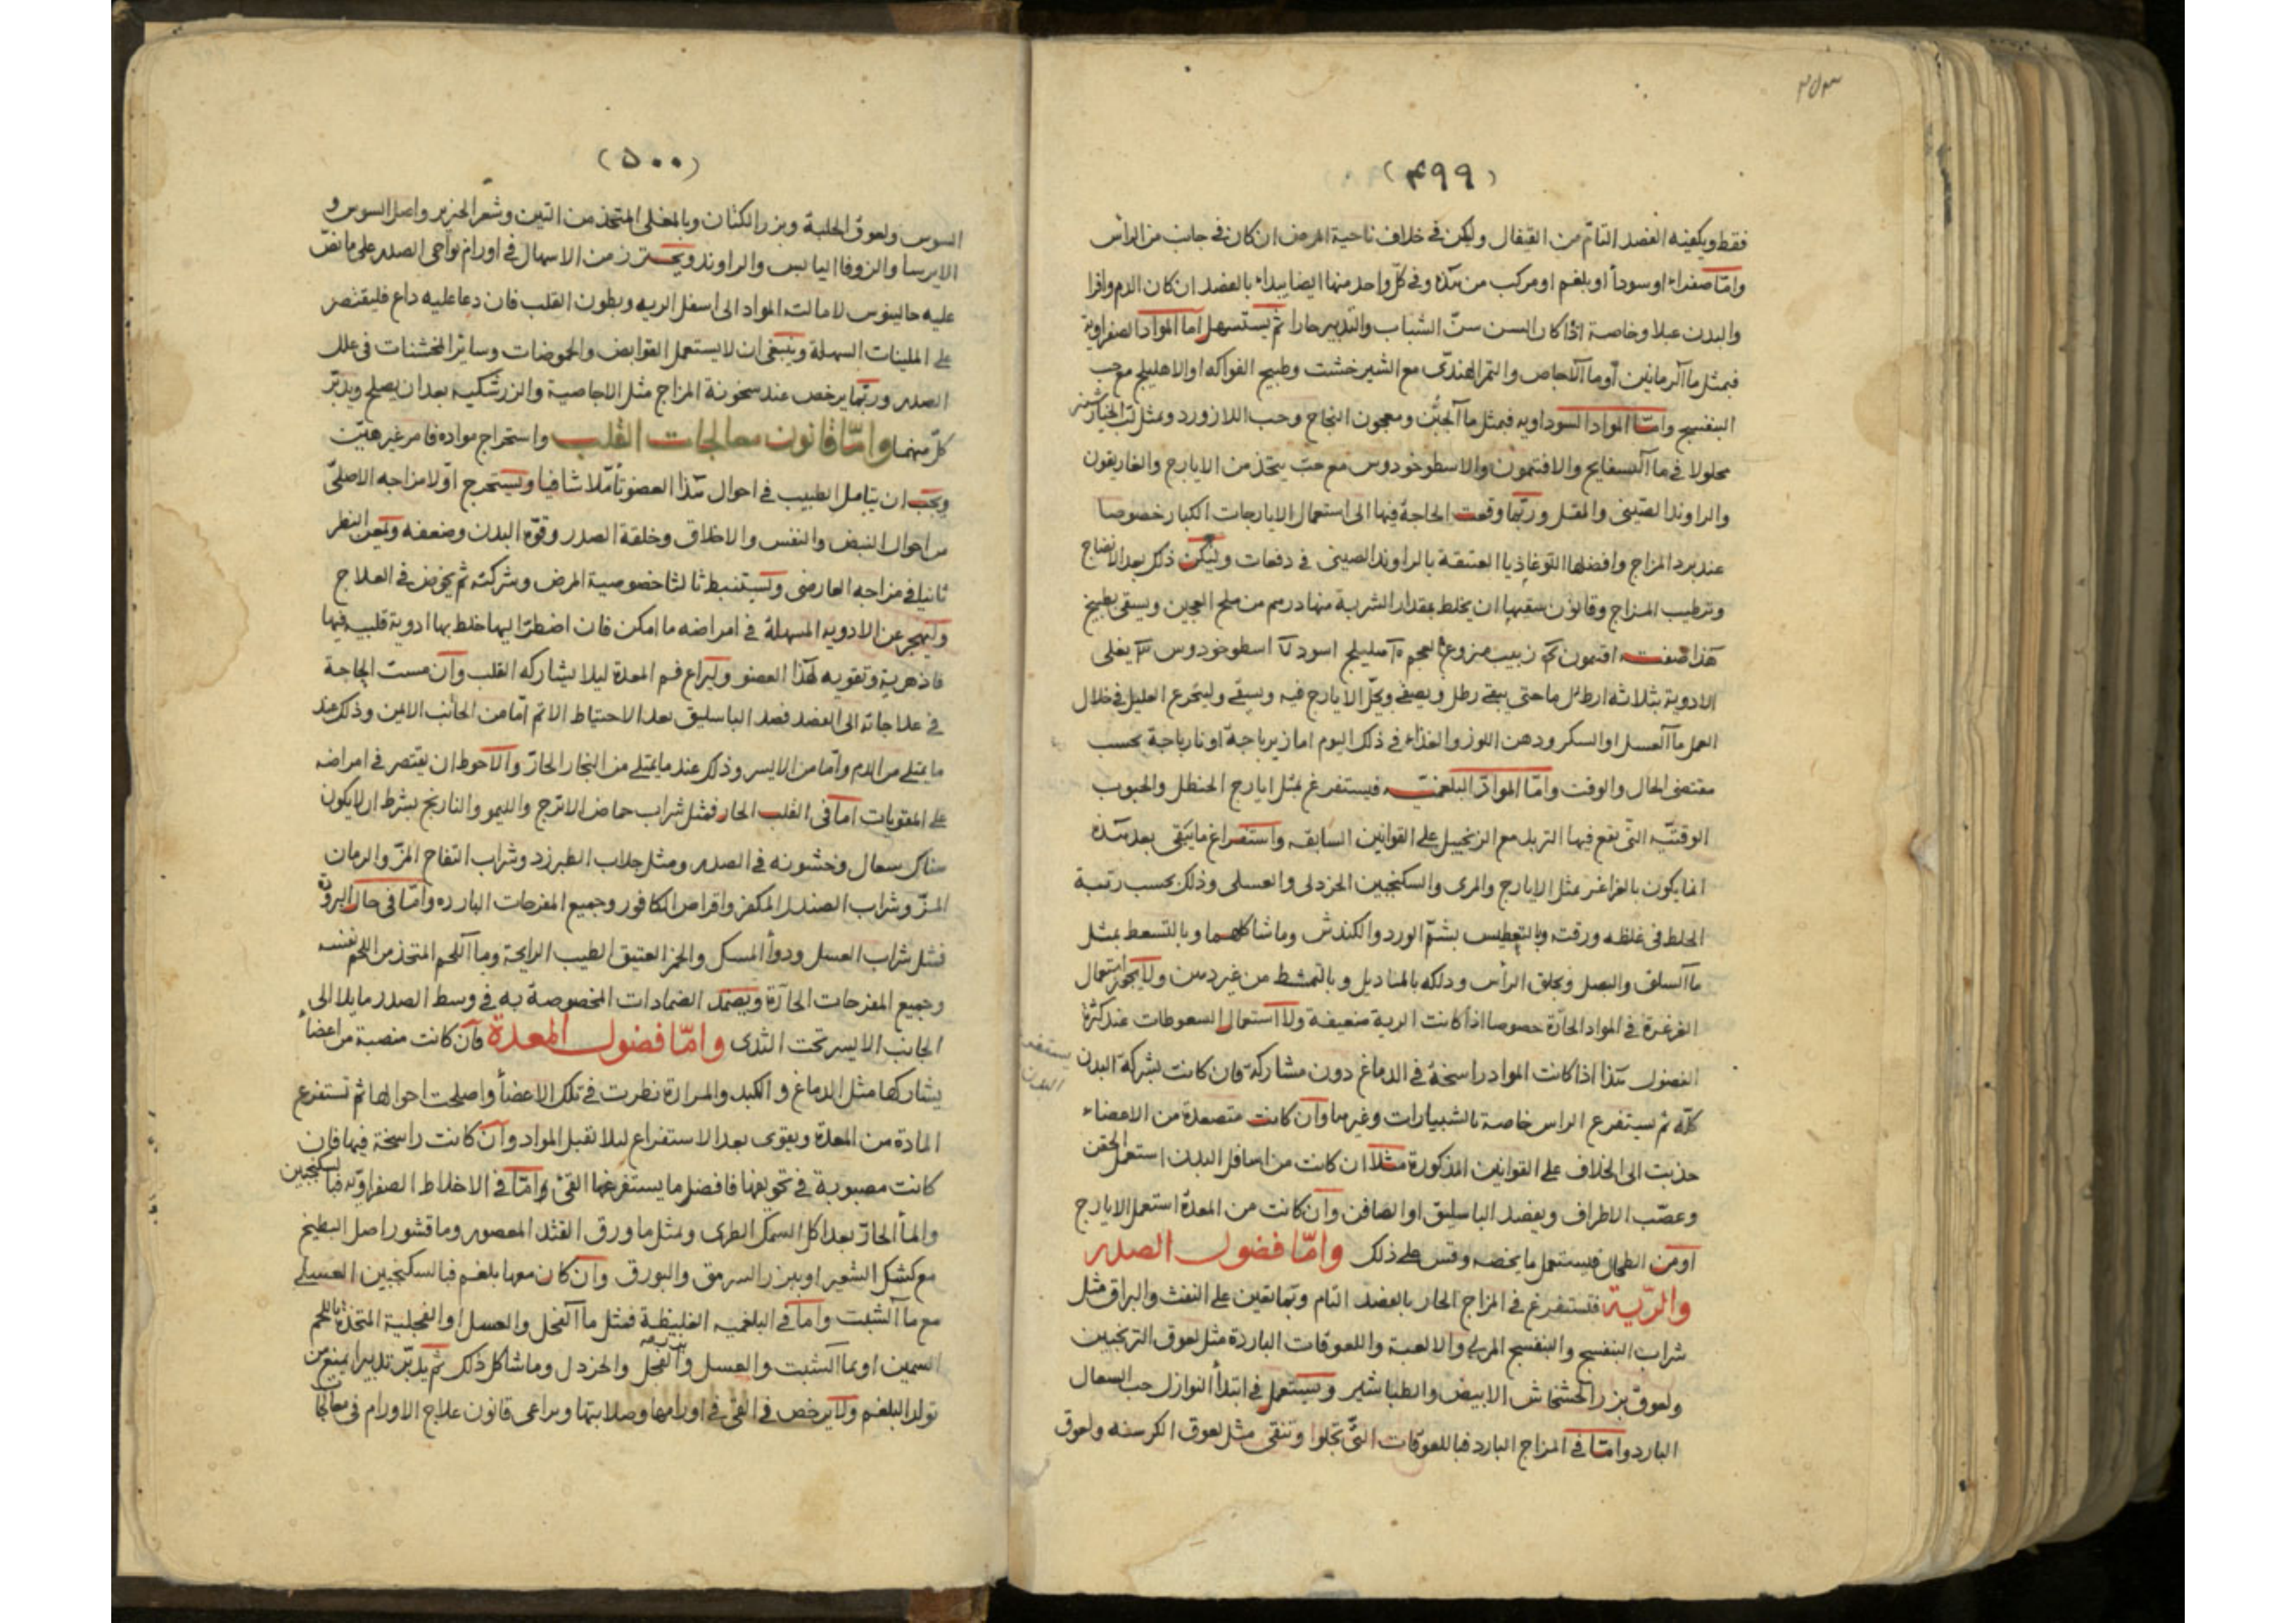 ٣٥٣
(٤٩٩)
فقط ويكفيه الفصد التام من القيفال وليكن في خلاف ناحية المرض ان كان في جانب من الراس
واما صفراء او سودأ او بلغم او مركب من هذه وفي كل واحد منها ايضا يبداء بالفصد ان كان الدم وافرا
والبدن عبلا وخاصة اذا كان السن سن الشباب والتدبير حارا ثم يستسهل اما المواد الصفراوية
فبمثل ماآلرمانين أوماآلاجاص والتمر الهندى مع الشيرخشت وطبيخ الفواكه او الاهليلج مع حب
البنفسج واما المواد السوداويه فبمثل ماآلجبن ومعجون النجاح وحب اللازورد وبمثل لب الخيارشنبر
محلولا في ماآلبسفايج والافتيمون والاسطوخودوس مع حب يتخذ من الايارج والغاريقون
والراوند الصينى والمقل وربما وقعت الحاجة فيها الى استعمال الايارجات الكبار خصوصا
عند برد المزاج وافضلها اللوغاذيا العتيقة بالراوند الصينى في دفعات وليكن ذلك بعد الانضاج
وترطيب المزاج وقانون سقيها ان يخلط بمقدار الشربة منها درهم من ملح العجين ويسقى بطبيخ
هذا صفته افتيمون زبيب منزوع العجم هليلج اسود اسطوخودوس يغلى
الادوية بثلاثة ارطال ماحتى يبقى رطل ويصفى ويحل الايارج فيه ويسقى وليجرع العليل في خلال
العمل ماآلعسل او السكر ودهن اللوز والغذاء في ذلك اليوم اما زيرباجة او نارباجة بحسب
مقتضى الحال والوقت واما المواد البلغميه فيستفرغ بمثل ايارج الحنطل والحبوب
الوقتيه التى يقع فيها التربد مع الزنجبيل على القوانين السابقه واستفراغ مايبقى بعد هذه
انما يكون بالغراغر بمثل الايارج والمرى والسكنجبين الخردلى والعسلى وذلك بحسب رتبة
الخلط في غلظه ورقته وبالتعطيس بشم الورد والكندش وماشاكلهما وبالتسعط بمثل
ماآلسلق والبصل وبحلق الرأس ودلكه بالمناديل وبالتمشط من غير دهن ولايجوز استعمال
الغرغرة في المواد الحارة خصوصا اذا كانت الرية ضعيفة ولااستعمال السعوطات عند كثرة
الفضول هذا اذا كانت المواد راسخة في الدماغ دون مشاركة فان كانت بشركة البدن
يستفرغ البدن
كله ثم يستفرغ الراس خاصة بالشبيارات وغيرها وان كانت متصعدة من الاعضاء
جذبت الى الخلاف على القوانين المذكورة مثلا ان كانت من اسافل البدن استعمل الحقن
وعصب الاطراف ويفصد الباسليق او الصافن وان كانت من المعدة استعمل الايارج
او من الطحال فيستعمل مايخصه وقس على ذلك واما فضول الصدر
والرية فتستفرغ في المزاج الحار بالفصد التام وبمايعين على النفث والبزاق مثل
شراب البنفسج والبنفسج المربى والالعبة واللعوقات الباردة مثل لعوق الترنجبين
ولعوق بزر الخشخاش الابيض والطباشير ويستعمل في ابتدأ النوازل حب السعال
البارد واما في المزاج البارد فباللعوقات التى تجلوا وتنقى مثل لعوق الكرسنه ولعوق
(٥٠٠)
السوس ولعوق الحلبة وبزر الكتان وبالمغلى المتخذ من التين وشعر الخنزير واصل السوس و
الايرسا والزوفا اليابس والراوند ويحترز من الاسهال في اورام نواحى الصدر على مانص
عليه جالينوس لامالته المواد الى اسفل الريه وبطون القلب فان دعا عليه داع فليقتصر
على الملينات السهلة وينبغى ان لايستعمل القوابض والحموضات وساير المخشنات في علل
الصدر وربما يرخص عند سخونة المزاج مثل الاجاصية والزرشكيه بعد ان يصلح ويدبر
كل منهما واما قانون معالجات القلب واستخراج مواده فامر غير هين
ويجب ان يتامل الطبيب في احوال هذا العضو تأملا شافيا ويستخرج اولا مزاجه الاصلى
من احوال النبض والنفس والاخلاق وخلقة الصدر وقوة البدن وضعفه ويمعن النظر
ثانيا في مزاجه العارضى ويستنبط ثالثا خصوصية المرض وشركته ثم يخوض في العلاج
وليهجر عن الادويه المسهلة في امراضه ما امكن فان اضطر اليها خلط بها ادوية قلبيه فيها
فاذهرية وتقويه لهذا العضو وليراع فم المعدة ليلا يشاركه القلب وان مست الحاجة
في علاجاته الى الفصد فصد الباسليق بعد الاحتياط الاتم اما من الجانب الايمن وذلك عند
مايمتلى من الدم واما من الايسر وذلك عند مايمتلى من البخار الحار والاحوط ان يقتصر في امراضه
على المقويات اما في القلب الحار فمثل شراب حماض الاترج والليمو والنارنج بشرط ان لايكون
هناك سعال وخشونه في الصدر ومثل جلاب الطبرزد وشراب التفاح المز والرمان
المز وشراب الصندل المكفر واقراص الكافور وجميع المفرحات البارده واما في حال البرودة
فمثل شراب العسل ودوأ المسك والخمر العتيق الطيب الرايحة وماآللحم المتخذ من اللحم نفسه
وجميع المفرحات الحارة ويضمد الضمادات المخصوصة به في وسط الصدر مايلا الى
الجانب الايسر تحت الثدى واما فضول المعدة فان كانت منصبة من اعضأ
يشاركها مثل الدماغ والكبد والمرارة نظرت في تلك الاعضأ واصلحت احوالها ثم تستفرغ
المادة من المعدة ويقوى بعد الاستفراغ ليلا تقبل المواد وان كانت راسخة فيها فان
كانت مصبوبة في تجويفها فافضل مايستفرغها القئ واما في الاخلاط الصفراويه فبالسكنجبين
والمأ الحار بعد اكل السمك الطرى وبمثل ماورق القثد المعصور وماقشور اصل البطيخ
مع كشك الشعير او ببزر السرمق والبورق وان كان معها بلغم فبالسكنجبين العسلى
مع ماآلشبت واما في البلغميه الغليظة فمثل ماآلفجل والعسل او الفجلية المتخذة باللحم
السمين او بماآلشبت والعسل وبزر الفجل والخردل وماشاكل ذلك ثم يدبر تدبيرا يمنع من
تولد البلغم ولايرخص في القئ في اورامها وصلابتها ويراعى قانون علاج الاورام في معالجاتها